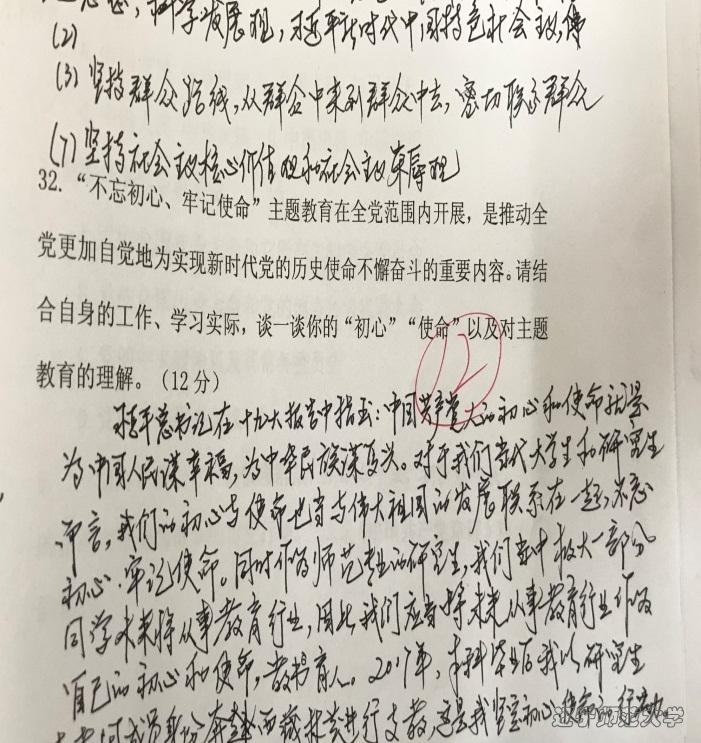 科学发展观，习近平新时代中国特色社会主义
(2)
(3) 坚持群众路线，从群众中来到群众中去，密切联系群众
(7) 坚持社会主义核心价值观和社会主义荣辱观
32. “不忘初心、牢记使命”主题教育在全党范围内开展，是推动全
党更加自觉地为实现新时代党的历史使命不懈奋斗的重要内容。请结
合自身的工作、学习实际，谈一谈你的“初心”“使命”以及对主题
教育的理解。（12 分）
12
习近平总书记在十九大报告中指出：中国共产党人的初心和使命就是
为中国人民谋幸福，为中华民族谋复兴。对于我们当代大学生和研究生
而言，我们的初心与使命也当与伟大祖国的发展联系在一起，不忘
初心、牢记使命。同时作为师范专业的研究生，我们当中极大一部分
同学未来将从事教育行业，因此我们应当将未来从事教育行业作为
自己的初心和使命，教书育人。2017年，本科毕业后我以研究生
成员身份奔赴西藏林芝进行支教，这是我坚定初心使命的行动
辽宁师范大学